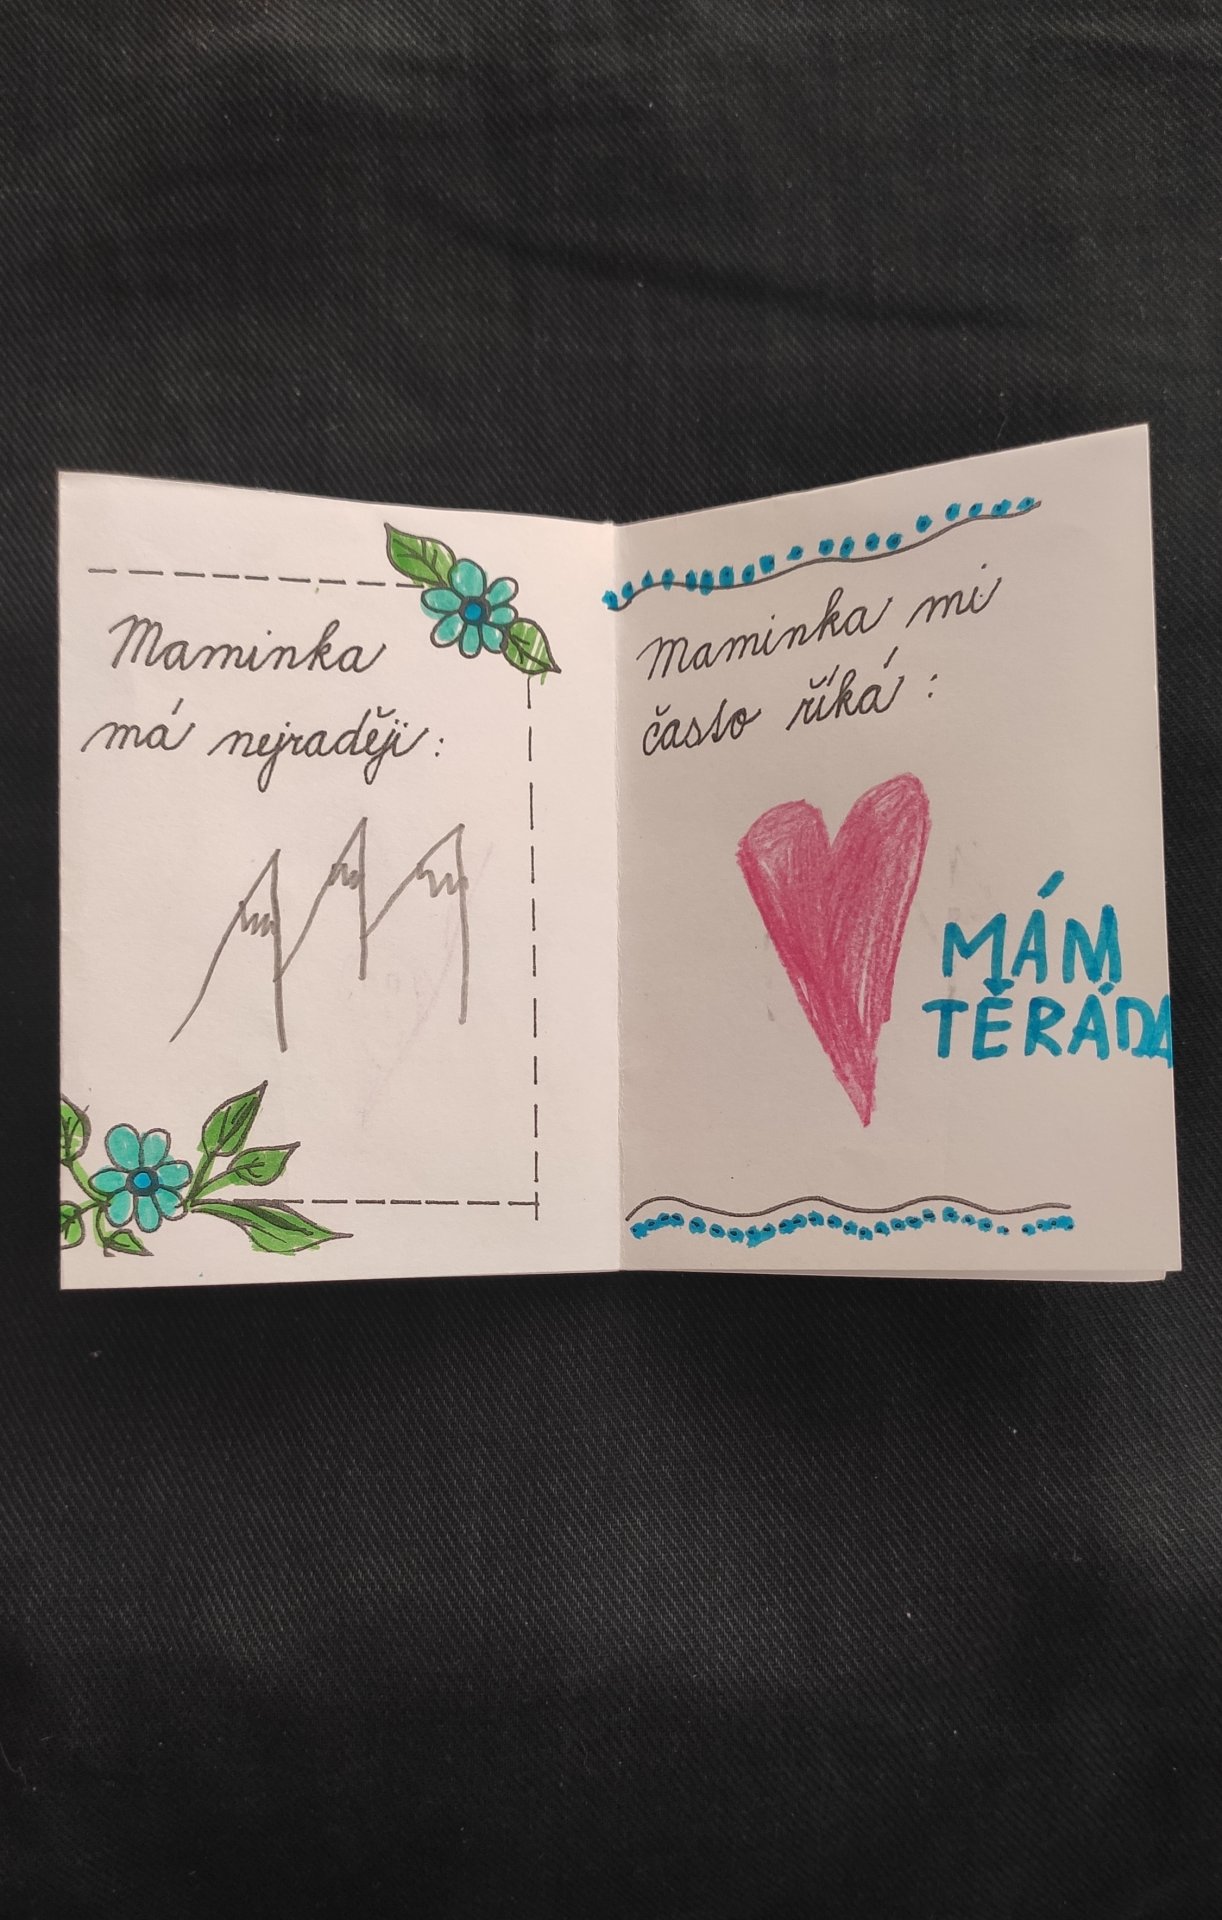 Maminka
má nejraději:
Maminka mi
často říká:
MÁM
TĚRÁDA